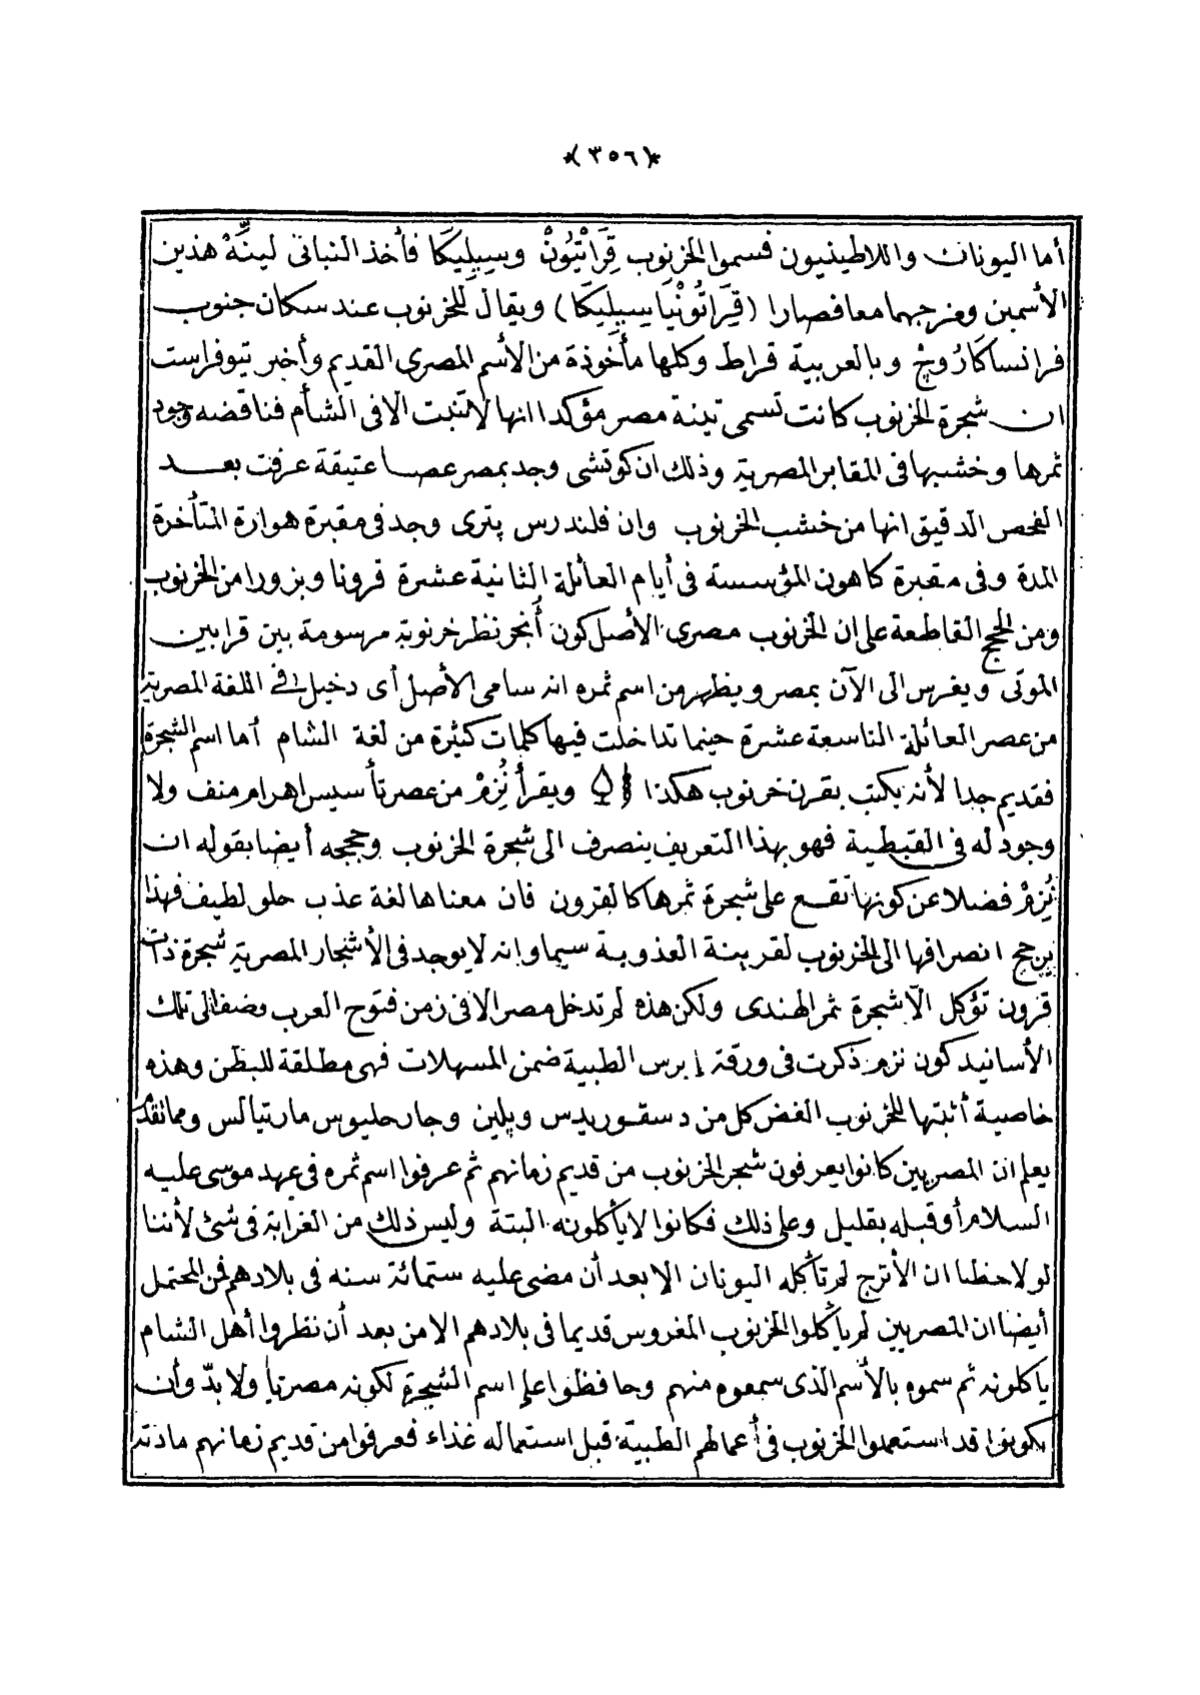 *(٣٥٦)*
أما اليونان واللاطينيون فسموا الخرنوب قِرَاتْيُونْ وسِيلِيكَا فأخذ النباتى لينِّهْ هذين
الأسمين ومزجهما معا فصارا (قِرَاتُونْيَا سِيلِيكَا) ويقال للخرنوب عند سكان جنوب
فرانسا كَارُوجْ وبالعربية قراط وكلها مأخوذة من الأسم المصرى القديم وأخبر تيوفراست
ان شجرة الخرنوب كانت تسمى تينة مصر مؤكدا انها لاتنبت الا فى الشأم فناقضه وجود
ثمرها وخشبها فى المقابر المصرية وذلك ان كوتشى وجد بمصر عصا عتيقة عرفت بعد
الفحص الدقيق انها من خشب الخرنوب وان فلندرس پترى وجد فى مقبرة هوارة المتأخرة
المدة وفى مقبرة كاهون المؤسسة فى أيام العائلة الثانية عشرة قرونا وبزورا من الخرنوب
ومن الحجج القاطعة على ان الخرنوب مصرى الأصل كون أنجر نظر خرنوبة مرسومة بين قرابين
الموتى ويغرس الى الآن بمصر ويظهر من اسم ثمره انه سامى الأصل أى دخيل فى اللغة المصرية
من عصر العائلة التاسعة عشرة حينما تداخلت فيها كلمات كثيرة من لغة الشام أما اسم الشجرة
فقديم جدا لأنه يكتب بقرن خرنوب هكذا ويقرأ نُزِمْ من عصر تأسيس اهرام منف ولا
وجود له فى القبطية فهو بهذا التعريف ينصرف الى شجرة الخرنوب وحججه أيضا بقوله ان
نُزِمْ فضلا عن كونها تقع على شجرة ثمرها كالقرون فان معناها لغة عذب حلو لطيف فهذا
يرجح انصرافها الى الخرنوب لقرينة العذوبة سيما وانه لا يوجد فى الأشجار المصرية شجرة ذات
قرون تؤكل الّا شجرة ثمر الهندى ولكن هذه لم تدخل مصر الا فى زمن فتوح العرب وضف الى تلك
الأسانيد كون نزم ذكرت فى ورقة إبرس الطبية ضمن المسهلات فهى مطلقة للبطن وهذه
خاصية أثبتها للخرنوب الغض كل من دسقوريدس وپلين وجارحليوس مارتيالس ومما تقدم
يعلم ان المصريين كانوا يعرفون شجر الخرنوب من قديم زمانهم ثم عرفوا اسم ثمره فى عهد موسى عليه
السلام أو قبله بقليل وعلى ذلك فكانوا لا يأكلونه البتة وليس ذلك من الغرابة فى شئ لأننا
لو لاحظنا ان الأترج لم تأكله اليونان الا بعد أن مضى عليه ستمائة سنه فى بلادهم فمن المحتمل
أيضا ان المصريين لم يأكلوا الخرنوب المغروس قديما فى بلادهم الا من بعد أن نظروا أهل الشام
يأكلونه ثم سموه بالأسم الذى سمعوه منهم وحافظوا على اسم الشجرة لكونه مصريا ولا بدّ وأن
يكونوا قد استعملوا الخرنوب فى أعمالهم الطبية قبل استعماله غذاء فعرفوا من قديم زمانهم مادته